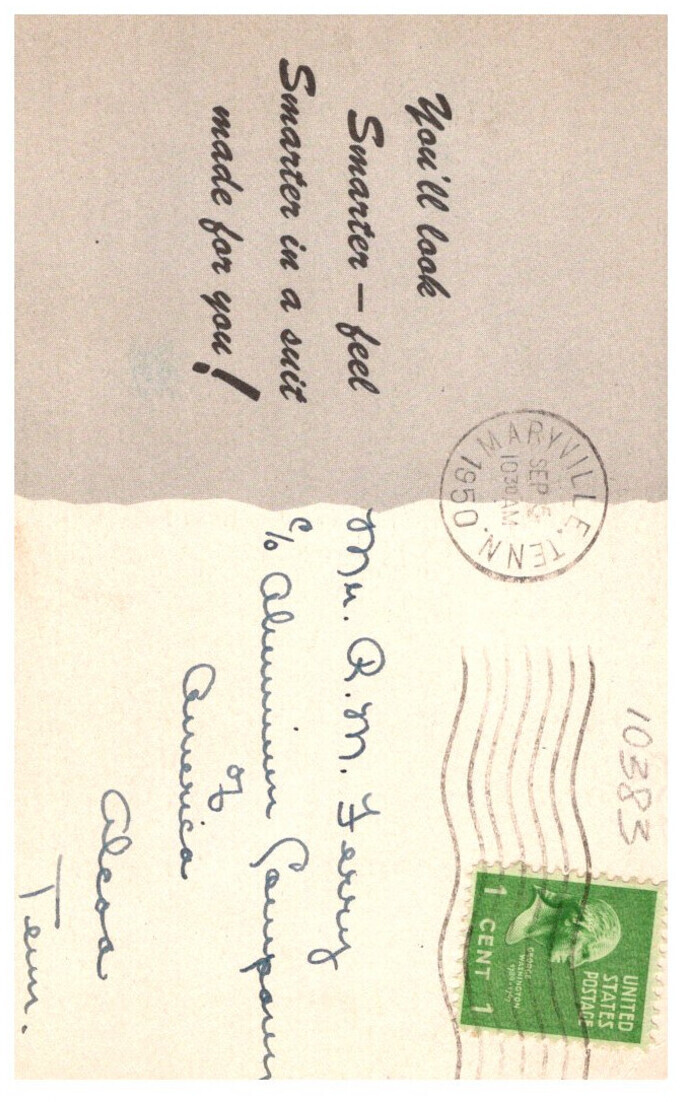 You'll look
Smarter — feel
Smarter in a suit
made for you!
MARYVILLE, TENN.
SEP 5
10 30 AM
1950
10383
UNITED
STATES
POSTAGE
GEORGE
WASHINGTON
1 CENT 1
Mr. R. M. Ferry
c/o Aluminum Company
of
America
Alcoa
Tenn.